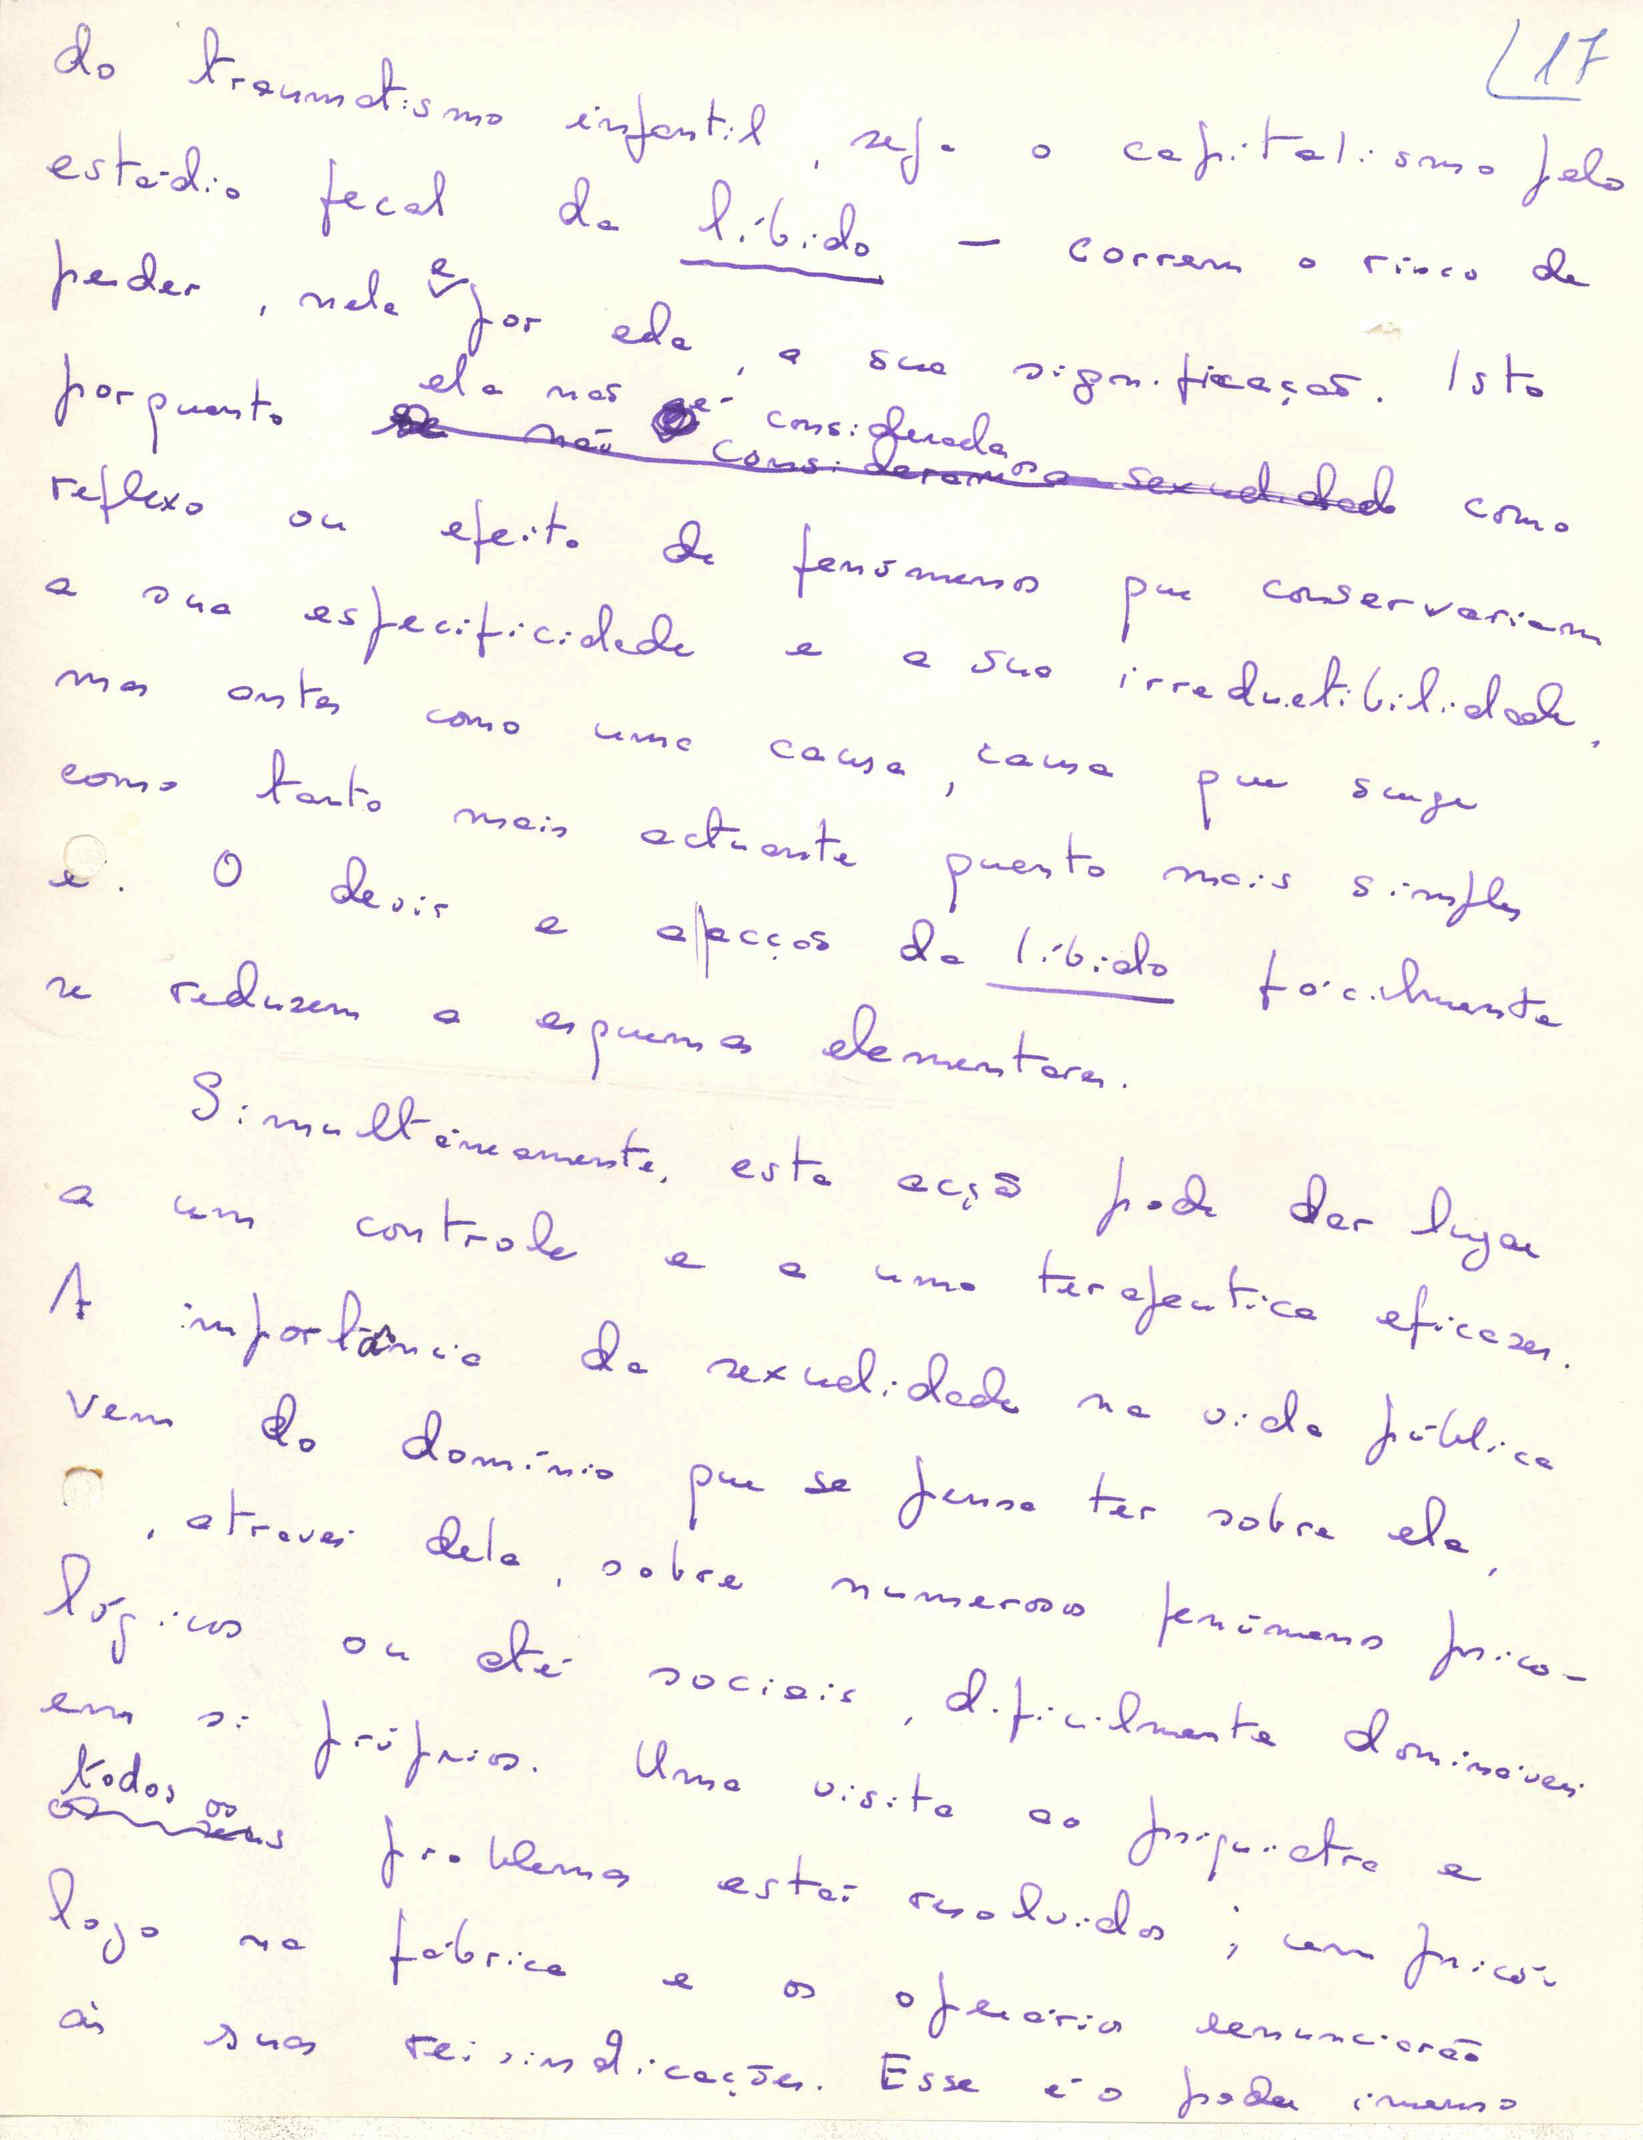 17
do traumatismo infantil, seja o capitalismo pelo
estádio fecal da líbido — correm o risco de
perder, nela e por ela, a sua significação. Isto
ela não é considerada
porquanto se não consideramos a sexualidade como
reflexo ou efeito de fenómenos que conservariam
a sua especificidade e a sua irreductibilidade,
mas antes como uma causa, causa que surge
como tanto mais actuante quanto mais simples
é. O devir e afecções da líbido fàcilmente
se reduzem a esquemas elementares.
Simultâneamente, esta acção pode dar lugar
a um controle e a uma terapeutica eficazes.
A importância da sexualidade na vida pública
vem do domínio que se pensa ter sobre ela,
, através dela, sobre numerosos fenómenos psico-
lógicos ou até sociais, dificilmente domináveis
em si próprios. Uma visita ao psiquiatra e
todos os
os seus problemas estão resolvidos; um psicó-
logo na fábrica e os operários renunciarão
às suas reivindicações. Esse é o poder imenso